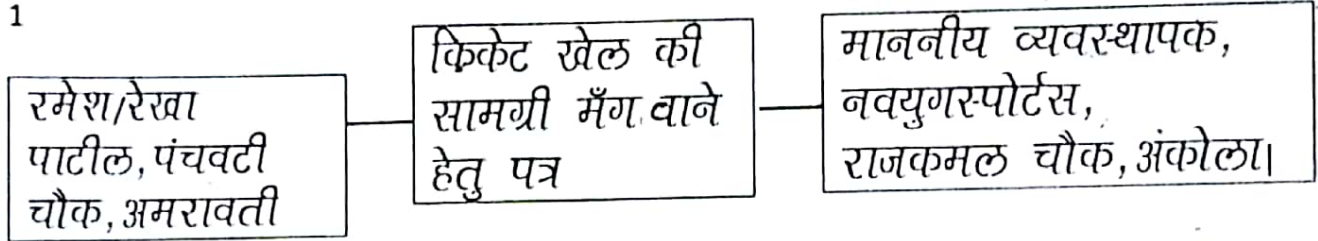 1
रमेश/रेखा
पाटील, पंचवटी
चौक, अमरावती
किकेट खेल की
सामग्री मँगवाने
हेतु पत्र
माननीय व्यवस्थापक,
नवयुगस्पोर्टस,
राजकमल चौक, अंकोला।